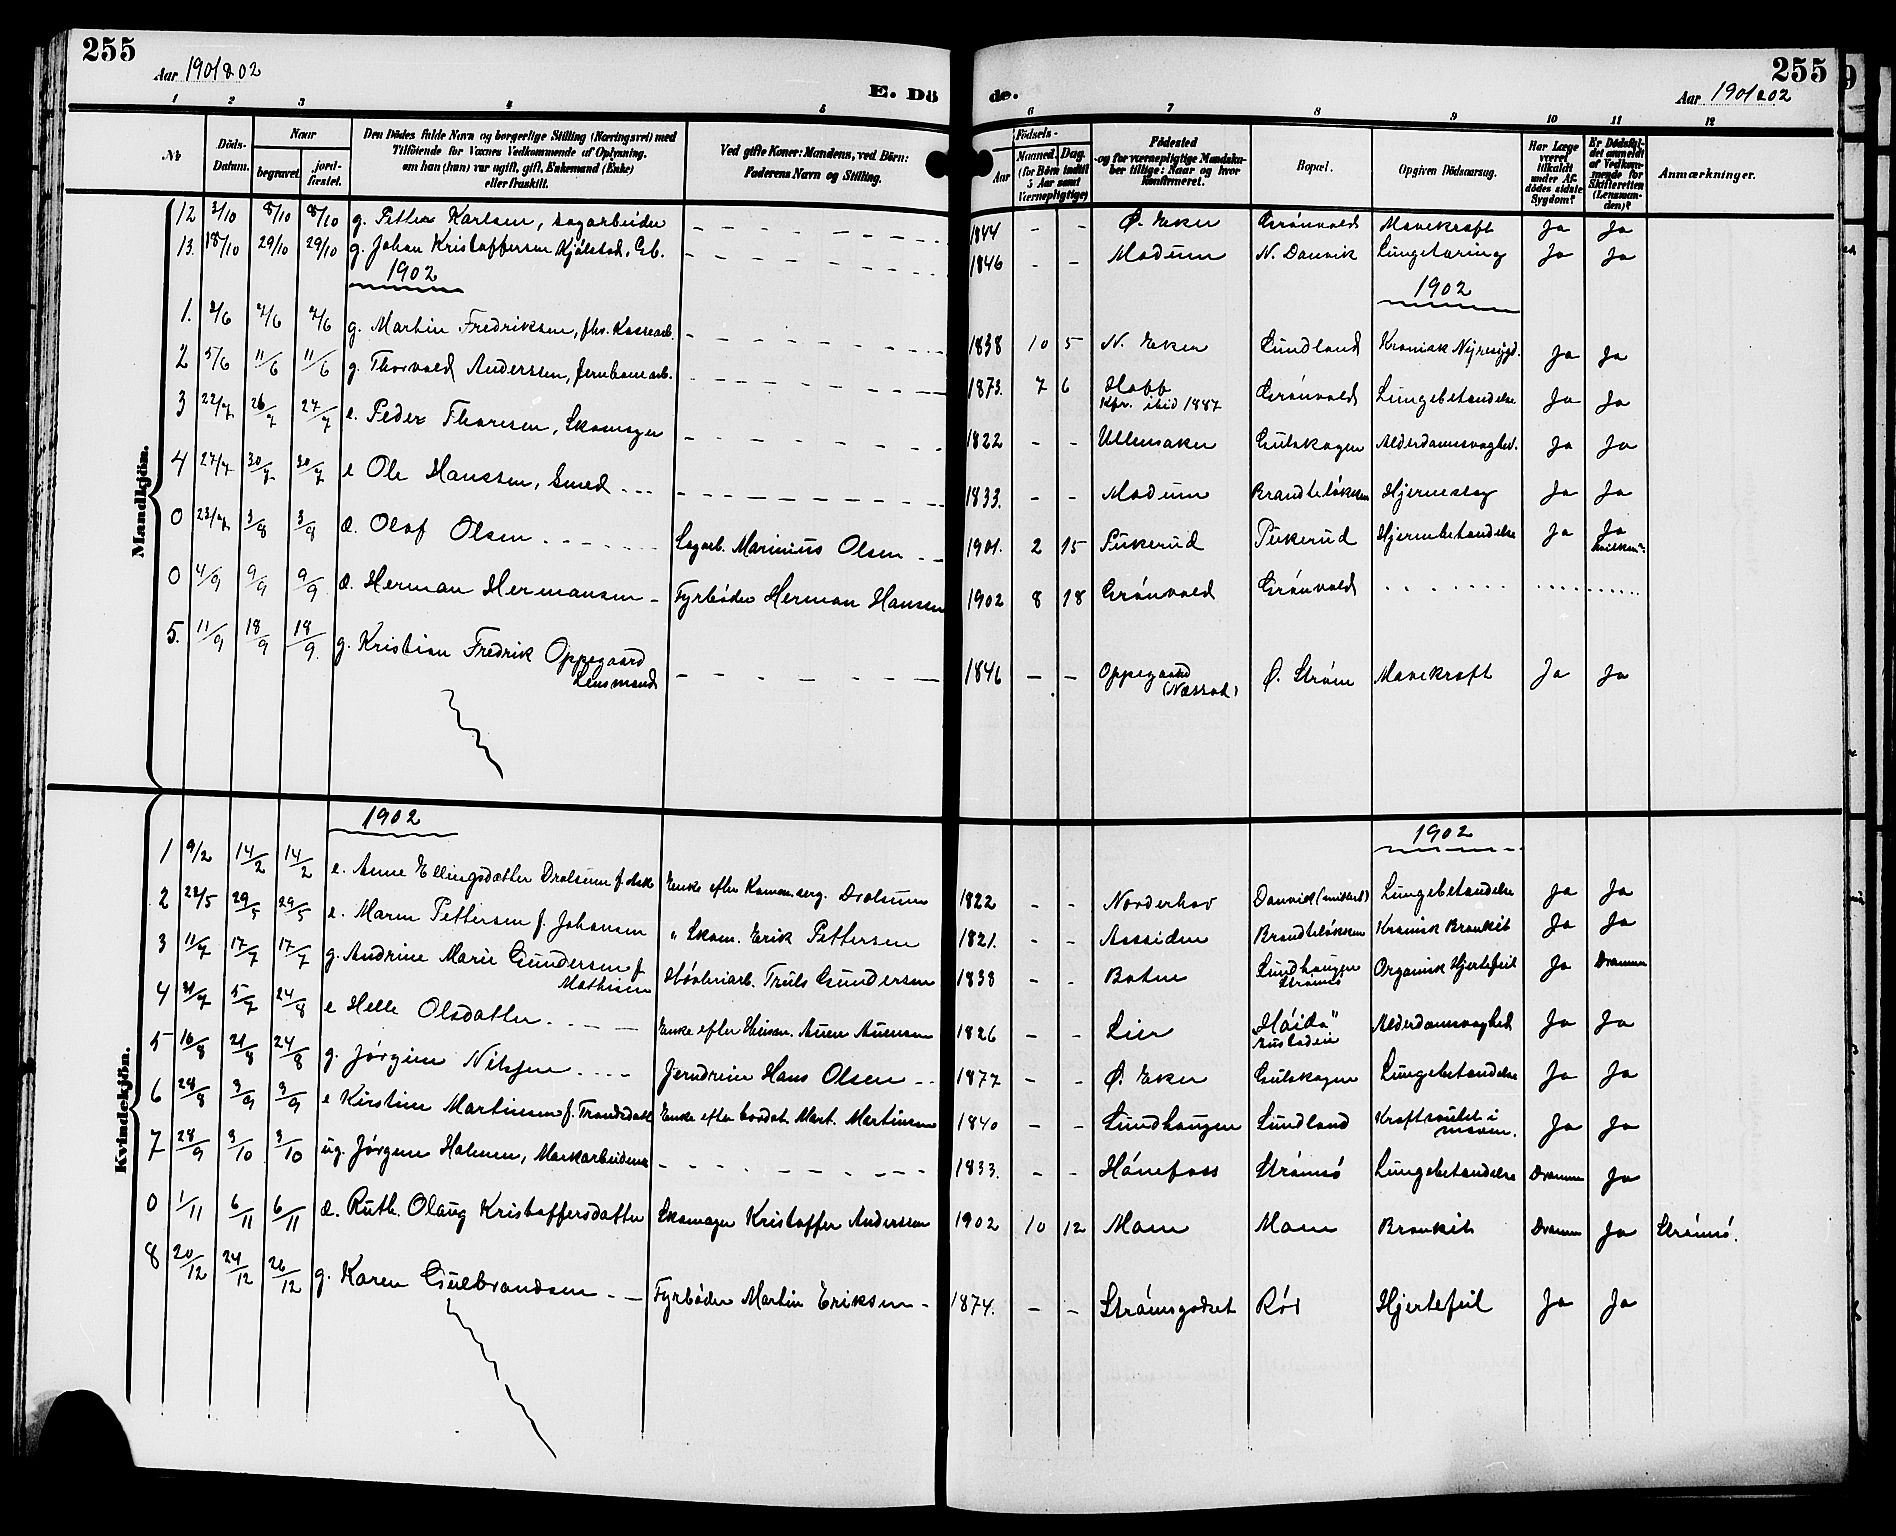 255
Aar 1901 & 02
E. Dö
1 2 3 4 5
No
Döds-Datum.
Naar
begravet.
jordfæstet.
Den Dödes fulde Navn og borgerlige Stilling (Næringsvei) med Tilföiende for Voxnes Vedkommende af Oplysning, om han (hun) var ugift, gift, Enkemand (Enke) eller fraskilt.
Ved gifte Koner: Mandens, ved Börn: Faderens Navn og Stilling.
Mandkjön.
12 3/10 8/10 8/10 g. Petter Karlsen, sagarbeider
13. 18/10 29/10 29/10 g. Johan Kristoffersen Kjølstad, Gb.
1902
1. 2/6 7/6 7/6 g. Martin Fredriksen, fhv. Kassearb.
2 5/6 11/6 11/6 g. Thorvald Anderssen, Jernbanearb.
3 22/7 26/7 27/7 e. Peder Thoresen, Skomager
4 27/7 30/7 30/7 e Ole Hanssen, Smed
0 23/7 3/8 3/8 æ. Olaf Olsen Sagarb. Marinius Olsen
0 4/9 9/9 9/9 æ. Herman Hermansen Fyrbøder Herman Hansen
5. 11/9 18/9 18/9 g. Kristian Fredrik Oppegaard
Lensmand
Kvindekjön.
1902
1 9/2 14/2 14/2 e. Anne Ellingsdatter Drolsum Enke efter Drolsum
2 22/5 29/5 29/5 e. Maren Pettersen f. Johansen " Skom. Erik Pettersen
3 11/7 17/7 17/7 g. Andrine Marie Gundersen f Høvleriarb. Truls Gundersen
Mathisen
4 5/7 24/8 e Helle Olsdatter Enke efter
5 16/8 21/8 24/8 g. Jørgine Nilsen Jerndreier Hans Olsen
6 28/8 3/9 3/9 e Kirstine Martinsen f. Enke efter Mart. Martinsen
7 28/9 3/10 3/10 ug. Jørgine Holmen, Markarbeiderske
0 1/11 6/11 6/11 æ. Ruth Olaug Kristoffersdatter Skomager Kristoffer Anderssen
8 20/12 24/12 26/12 g. Karen Gulbrandsen Fyrbøder Martin Eriksen
de.
255
Aar 1901 & 02
6 7 8 9 10 11 12
Födsels-
Aar
Maaned. Dag. (for Börn indtil 5 Aar samt Værnepligtige)
Födested og for værnepligtige Mandskaber tillige: Naar og hvor konfirmeret.
Bopæl.
Opgiven Dödsaarsag.
Har Læge været tilkaldt under Afdödes sidste Sygdom?
Er Dödsfaldet anmeldt af Vedkommende for Skifteretten (Lensmanden)?
Anmærkninger.
1844 Ø. Eker Grønvold Mavekræft Ja Ja
1846 Modum N. Danvik Lungetæring Ja Ja
1902
1838 10 5 N. Eker Lundland Kronisk Nyresygd. Ja Ja
1873. 7 6 Hoff Grønvold Lungebetændelse Ja Ja
Kfr. ibid 1887
1822 Ullensaker Gulskogen Alderdomssvaghed. Ja Ja
1833. Modum Brandteløkken Hjerneslag Ja Ja
1901. 2 15 Pukerud Pukerud Hjernebetændelse Ja Ja
1902 8 18 Grønvold Grønvold
1846 Oppegaard Ø. Strøm Mavekræft Ja Ja
(Næssod.)
1902
1822 Norderhov Danvik Lungebetændelse Ja Ja
1821. Aassiden Brandteløkken Kronisk Bronkit Ja Ja
1838 Botne Lundhaugen Organisk Hjertefeil Ja Drammen
Strømsø
1826 Lier "Høida" Alderdomssvaghed Ja Ja
1877 Ø. Eker Gulskogen Lungebetændelse Ja Ja
1840 Lundhaugen Lundland Kræftsvulst i Ja Ja
maven.
1833. Hønefoss Strømsø Lungebetændelse Drammen Ja
1902 10 12 Moen Moen Bronkit Drammen Ja Strømsø.
1874. Strømsgodset Rød Hjertefeil Ja Ja